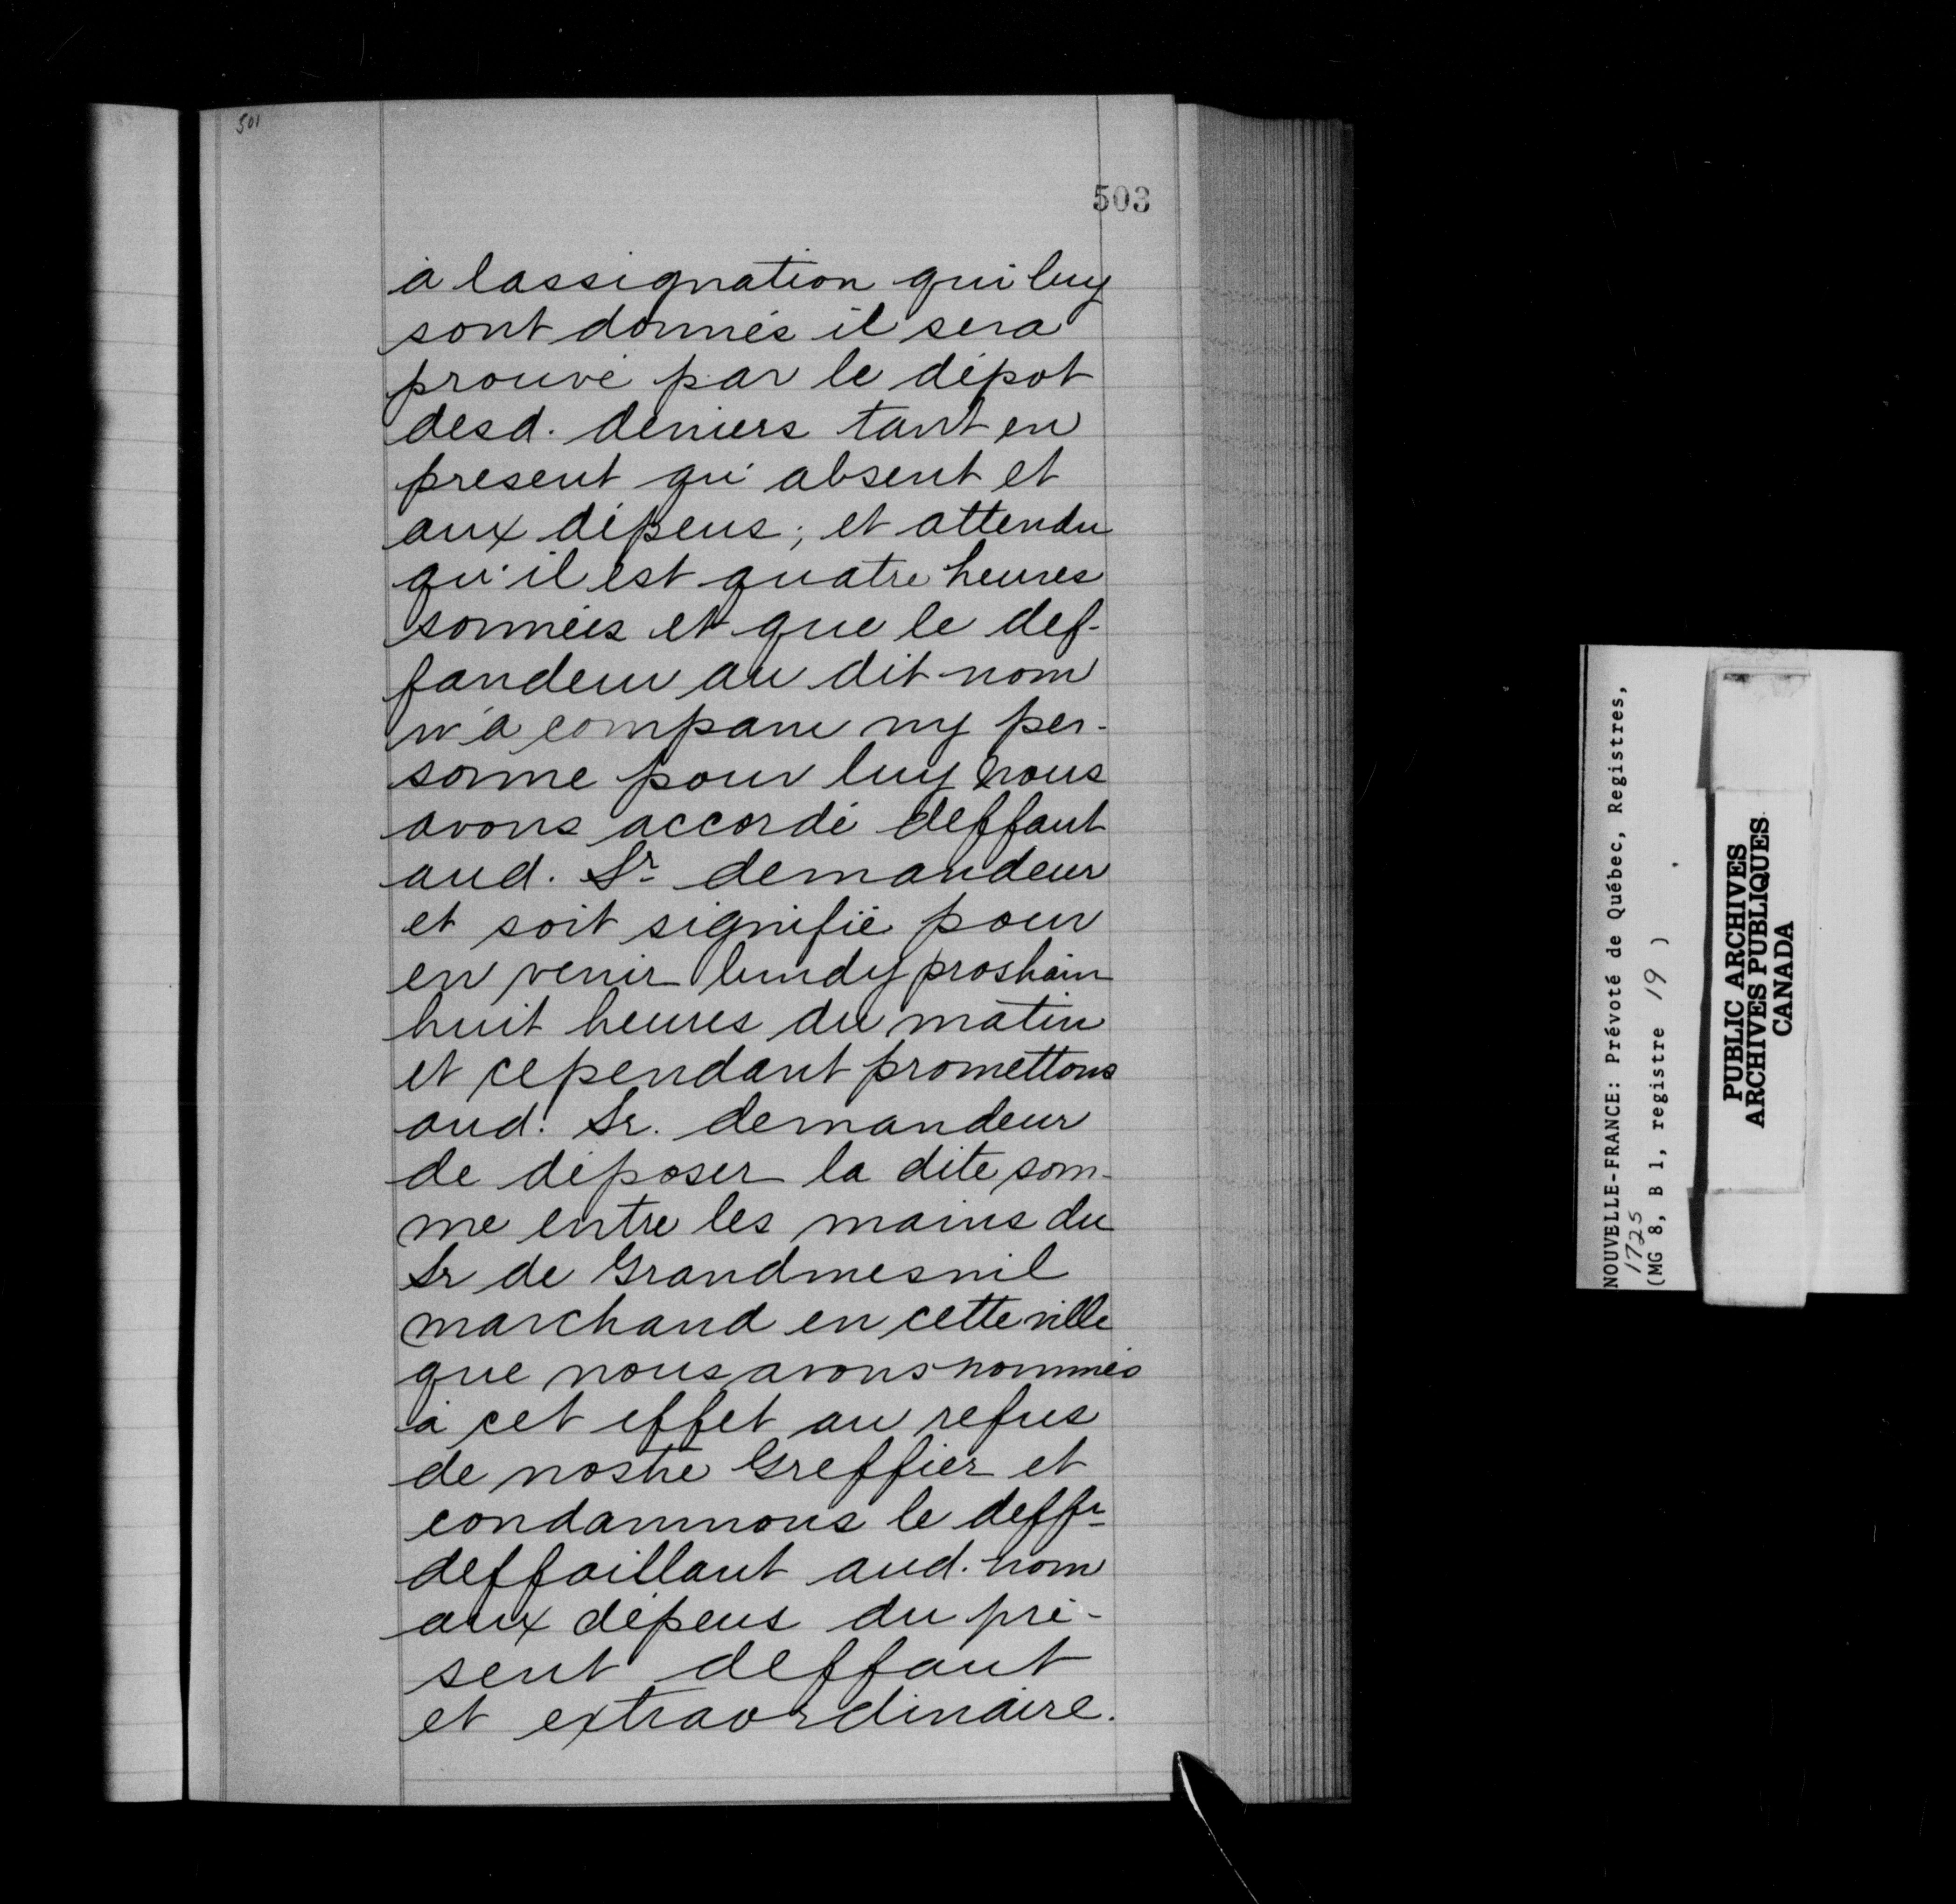 501
503
à lassignation qui luy
sont donnés il sera
prouvé par le dépot
desd. deniers tant en
present qu'absent et
aux dépens; et attendu
qu'il est quatre heures
sonnées et que le def-
fandeur au dit nom
n'a comparu ny per-
sonne pour luy nous
avons accordé deffaut
aud. Sr demandeur
et soit signifié pour
en venir lundy proshain
huit heures du matin
et cependant promettons
aud. Sr. demandeur
de déposer la dite som-
me entre les mains du
Sr de Grandmesnil
marchand en cette ville
que nous avons nommés
à cet effet au refus
de nostre Greffier et
condamnons le deffr
deffaillant aud. nom
aux dépens du pré-
sent deffaut
et extraordinaire.
NOUVELLE-FRANCE: Prévoté de Québec, Registres,
1725
(MG 8, B 1, registre 19 )
PUBLIC ARCHIVES
ARCHIVES PUBLIQUES
CANADA